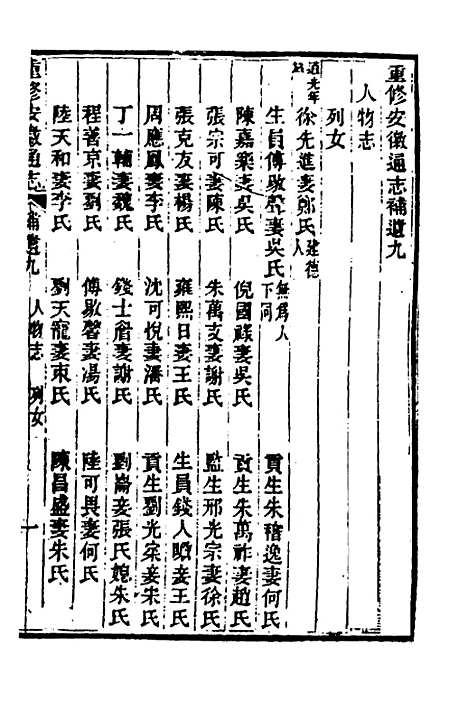 重修安徽通志補遺九
人物志
列女
道光年
徐先進妻鄭氏建德人
生員傅敭聲妻吳氏無爲人下同
貢生朱稽逸妻何氏
陳嘉樂妻吳氏 倪國祿妻吳氏 貢生朱萬祚妻趙氏
張宗可妻陳氏 朱萬支妻謝氏 監生邢光宗妻徐氏
張克友妻楊氏 雍熙日妻王氏 生員錢人瞻妾王氏
周應鳳妻李氏 沈可悅妻潘氏 貢生劉光宗妾朱氏
丁一輔妻魏氏 錢士會妻謝氏 劉崙妾張氏媳朱氏
程善京妻劉氏 傅敭磬妻湯氏 陸可畏妻何氏
陸天和妻李氏 劉天寵妻東氏 陳昌盛妻朱氏
重修安徽通志 補遺九 人物志 列女 一